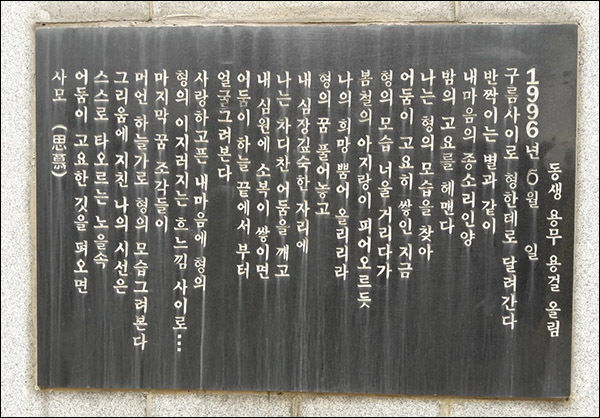 사모 (思慕)
어둠이 고요한것을 펴오면
스스로 타오르는 노을속
그리움에 지친 나의 시선은
머언 하늘가로 형의 모습그려본다
마지막 꿈 조각들이
형의 이지러지는 흐느낌 사이로…
사랑하고픈 내마음에 형의
얼굴그려본다
어둠이 하늘 끝에서 부터
내 심원에 소복이 쌓이면
나는 차디찬 어둠을 깨고
내 심장깊숙한 자리에
형의 꿈 풀어놓고
나의 희망 뿜어 올리리라
봄철의 아지랑이 피어오르듯
형의 모습 너울거리다가
어둠이 고요히 쌓인 지금
나는 형의 모습을 찾아
밤의 고요를 헤맨다
내마음의 종소리인양
반짝이는 별과 같이
구름사이로 형한데로 달려간다
1996년 6월 일
동생 용무 용걸 올림